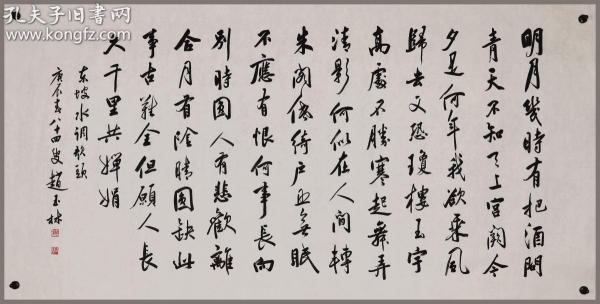 孔夫子旧书网
www.kongfz.com
明月幾時有把酒問
青天不知天上宮闕今
夕是何年我欲乘風
歸去又恐瓊樓玉宇
高處不勝寒起舞弄
清影何似在人間轉
朱閣低綺戶照無眠
不應有恨何事長向
別時圓人有悲歡離
合月有陰晴圓缺此
事古難全但願人長
久千里共嬋娟
东坡水调歌頭
庚辰春八十四叟趙玉林